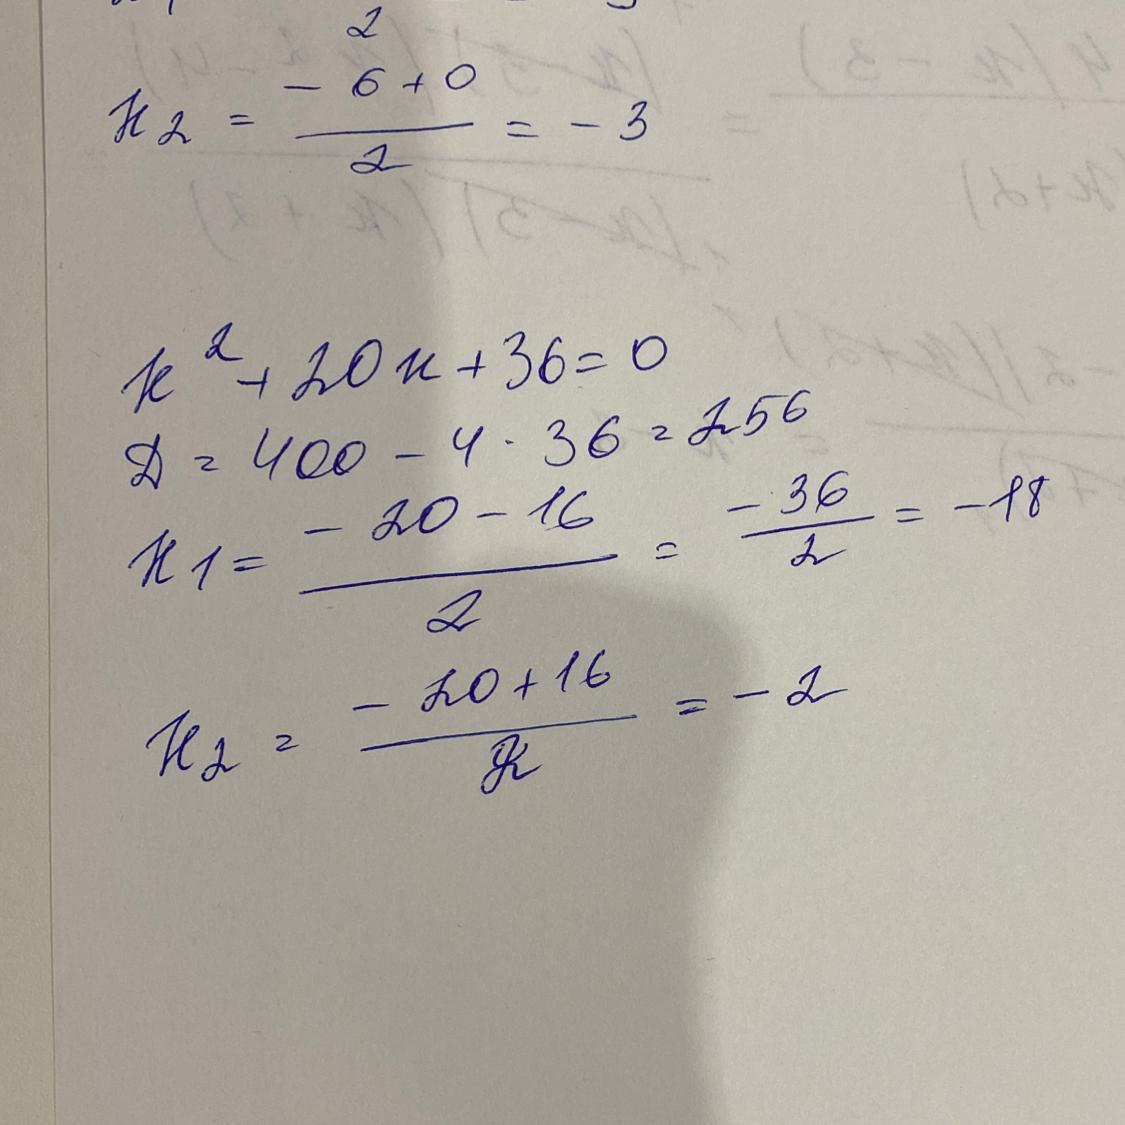 2
x2 = (-6+0)/2 = -3
x² + 20x + 36 = 0
D = 400 - 4 · 36 = 256
x1 = (-20-16)/2 = -36/2 = -18
x2 = (-20+16)/2 = -2